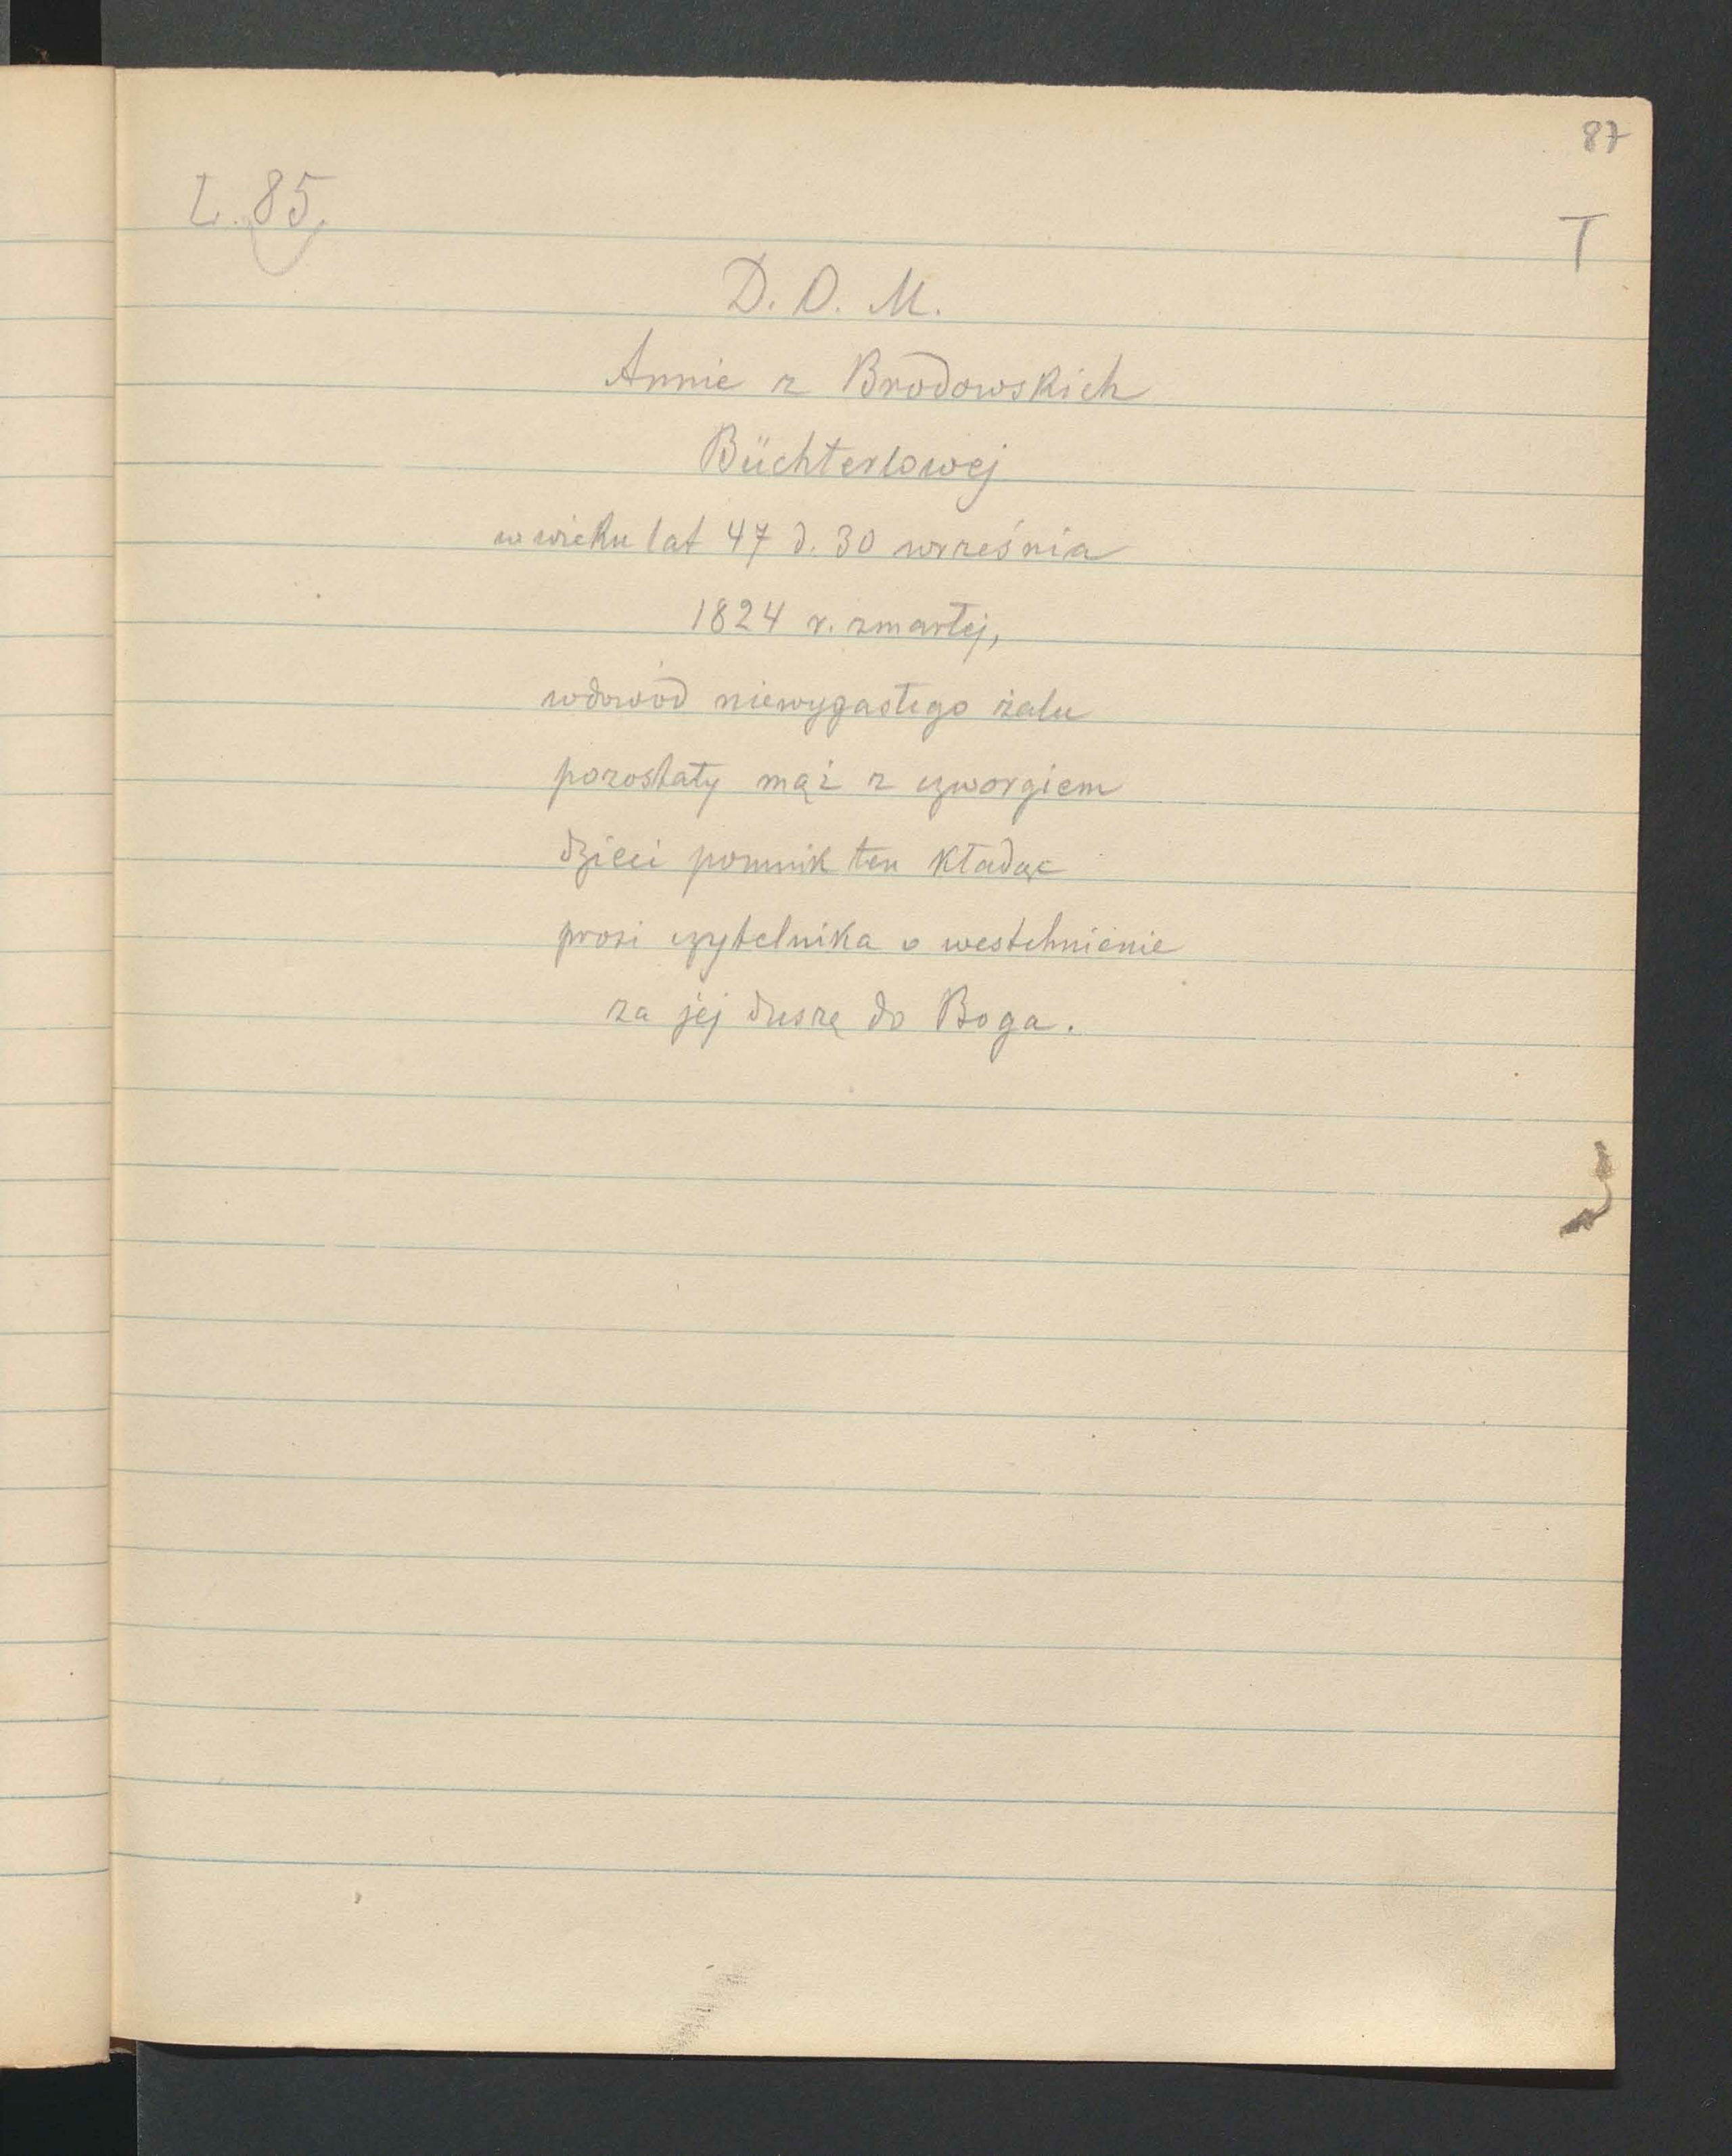 87
L. 85.
T
D. O. M.
Annie z Brodowskich
Büchterlowej
w wieku lat 47 d. 30 września
1824 r. zmarłej,
w dowód niewygasłego żalu
pozostały mąż z czworgiem
dzieci pomnik ten kładąc
prosi czytelnika o westchnienie
za jej duszę do Boga.